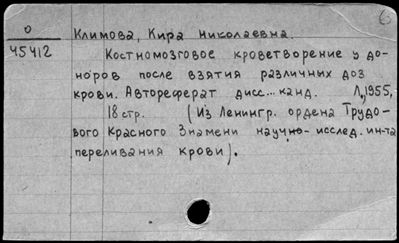 О
45412
Климова, Кира Николаевна.
Костномозговое кроветворение у до-
норов после взятия различных доз
крови. Автореферат дисс... канд. Л., 1955,
18 стр. (Из Ленингр. ордена Трудо-
вого Красного Знамени научно-исслед. ин-та
переливания крови).